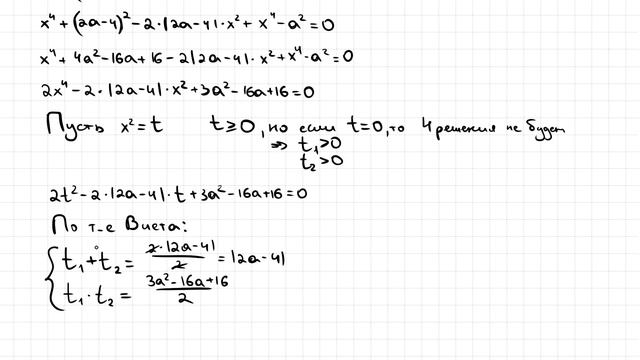 x⁴ + (2a-4)² - 2·|2a-4|·x² + x⁴ - a² = 0
x⁴ + 4a² - 16a + 16 - 2|2a-4|·x² + x⁴ - a² = 0
2x⁴ - 2·|2a-4|·x² + 3a² - 16a + 16 = 0
Пусть x² = t t ≥ 0, но если t = 0, то 4 решения не будет
⇒ t₁ > 0
t₂ > 0
2t² - 2·|2a-4|·t + 3a² - 16a + 16 = 0
По т-е Виета:
{ t₁ + t₂ = 2·|2a-4| / 2 = |2a-4|
t₁ · t₂ = 3a² - 16a + 16 / 2